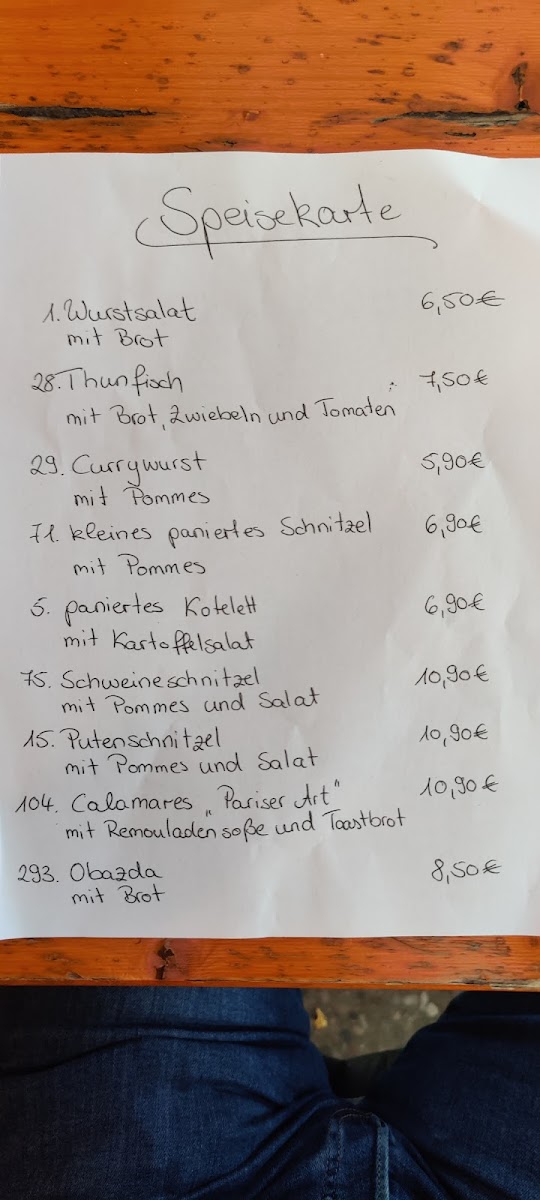 Speisekarte
1. Wurstsalat 6,50€
mit Brot
28. Thunfisch 7,50€
mit Brot, Zwiebeln und Tomaten
29. Currywurst 5,90€
mit Pommes
71. kleines paniertes Schnitzel 6,90€
mit Pommes
5. paniertes Kotelett 6,90€
mit Kartoffelsalat
75. Schweineschnitzel 10,90€
mit Pommes und Salat
15. Putenschnitzel 10,90€
mit Pommes und Salat
104. Calamares „Pariser Art" 10,90€
mit Remouladensoße und Toastbrot
293. Obazda 8,50€
mit Brot